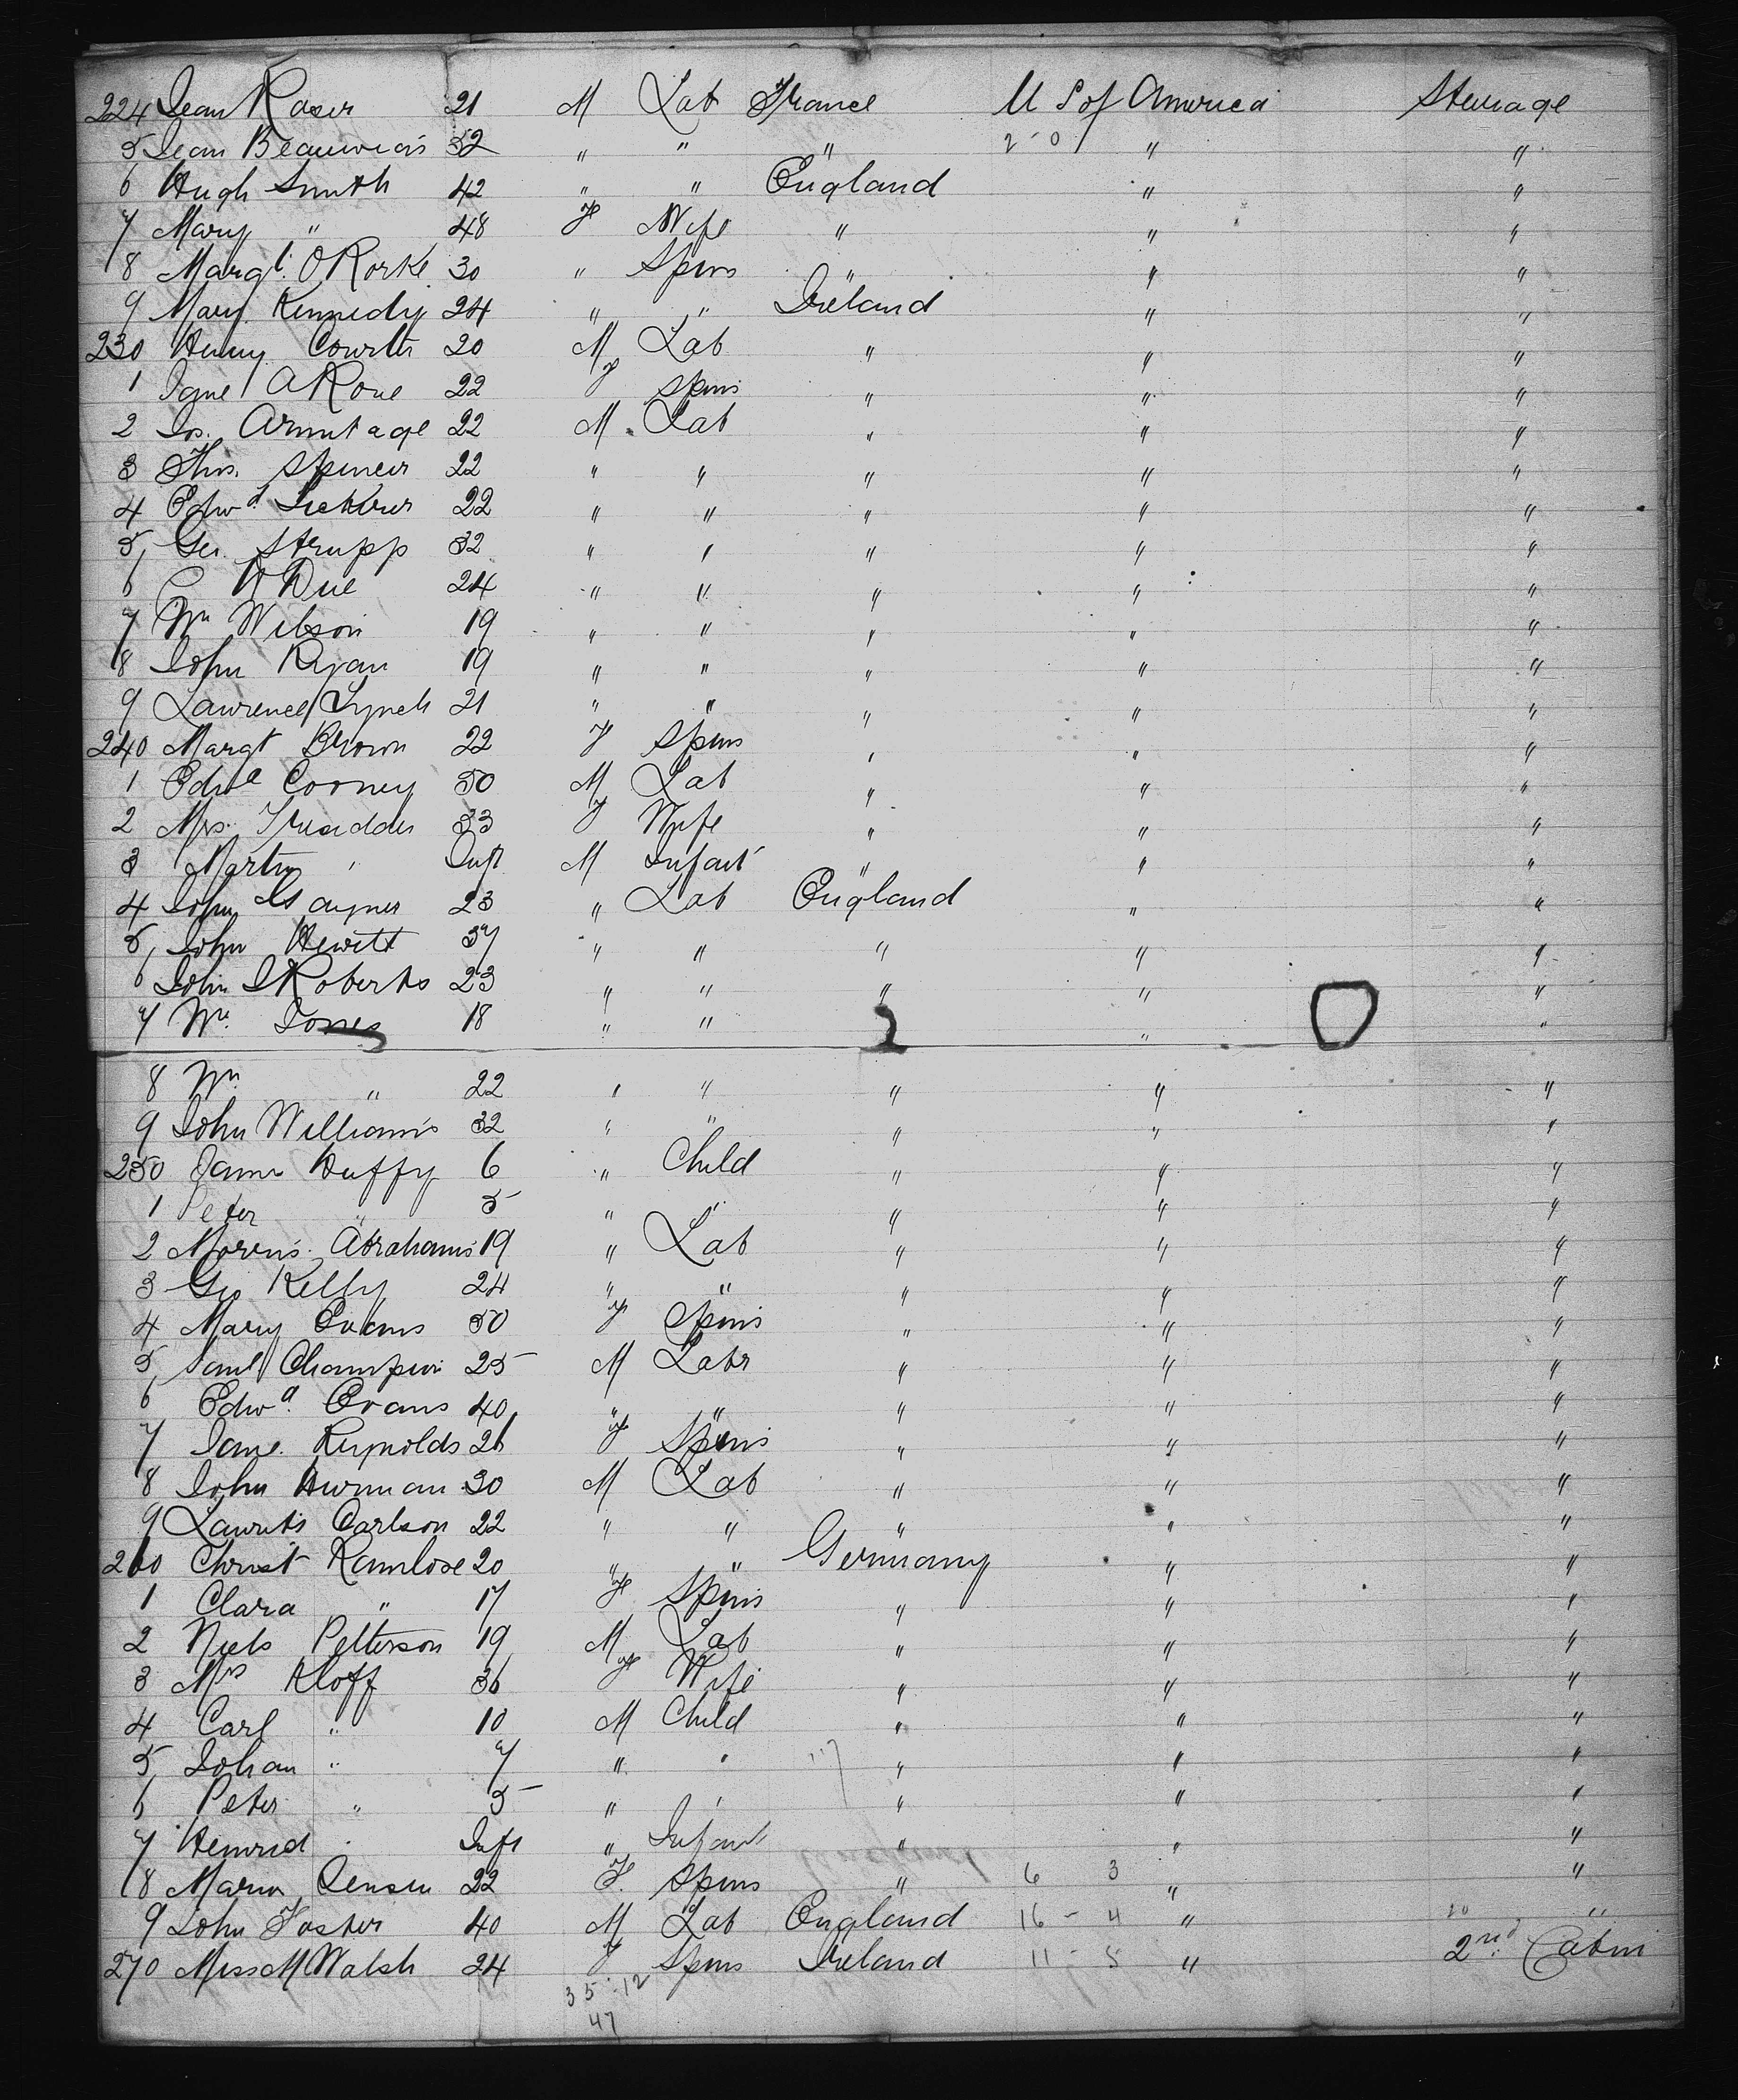 224 Jean Roser 21 M Lab France U S of America Steerage
5 Jean 32 " " " 2-0 " "
6 Hugh Smith 42 " " England " "
7 Mary " 48 F Wife " " "
8 Margt. O Rorke 30 " Spins " " "
9 Mary Kennedy 24 " " Ireland " "
230 Henry 20 M Lab " " "
1 Jane 22 F Spins " " "
2 Jos. Armitage 22 M Lab " " "
3 Thos. Spencer 22 " " " " "
4 Edwd. 22 " " " " "
5 Geo. Strupp 32 " " " " "
6 24 " " " " "
7 Wm Wilson 19 " " " " "
8 John Ryan 19 " " " " "
9 Lawrence Lynch 21 " " " " "
240 Margt Brown 22 F Spins " " "
1 Edwd Cooney 50 M Lab " " "
2 Mrs. 33 F Wife " " "
3 Martin " Inft M Infant " " "
4 John 23 " Lab England " "
5 John Hewitt 37 " " " " "
6 John Roberts 23 " " " " "
7 Wm. Jones 18 " " " " "
2
8 Wm. " 22 " " " " "
9 John Williams 32 " " " " "
250 James Duffy 6 " Child " " "
1 Peter " 5 " " " " "
2 Morris Abrahams 19 " Lab " " "
3 Geo Kelly 24 " " " " "
4 Mary Evans 50 F Spins " " "
5 Saml Champion 25 M Labr " " "
6 Edwd. Evans 40 " " " " "
7 Jane Reynolds 26 F Spins " " "
8 John 30 M Lab " " "
9 Laurits Carlson 22 " " " " "
260 Christ Ramlose 20 " " Germany " "
1 Clara " 17 F Spins " " "
2 Niels Petterson 19 M Lab " " "
3 Mrs Kloff 36 F Wife " " "
4 Carl " 10 M Child " " "
5 Johan " 7 " " " " "
6 Peter " 5 " " " " "
7 " Inft " Infant " " "
8 Maria Jensen 22 F. Spins " 6 3 " "
9 John Foster 40 M Lab England 16 - 4 " "
270 Miss M Walsh 24 F Spins Ireland 11 - 5 " 2nd Cabin
35-12
47